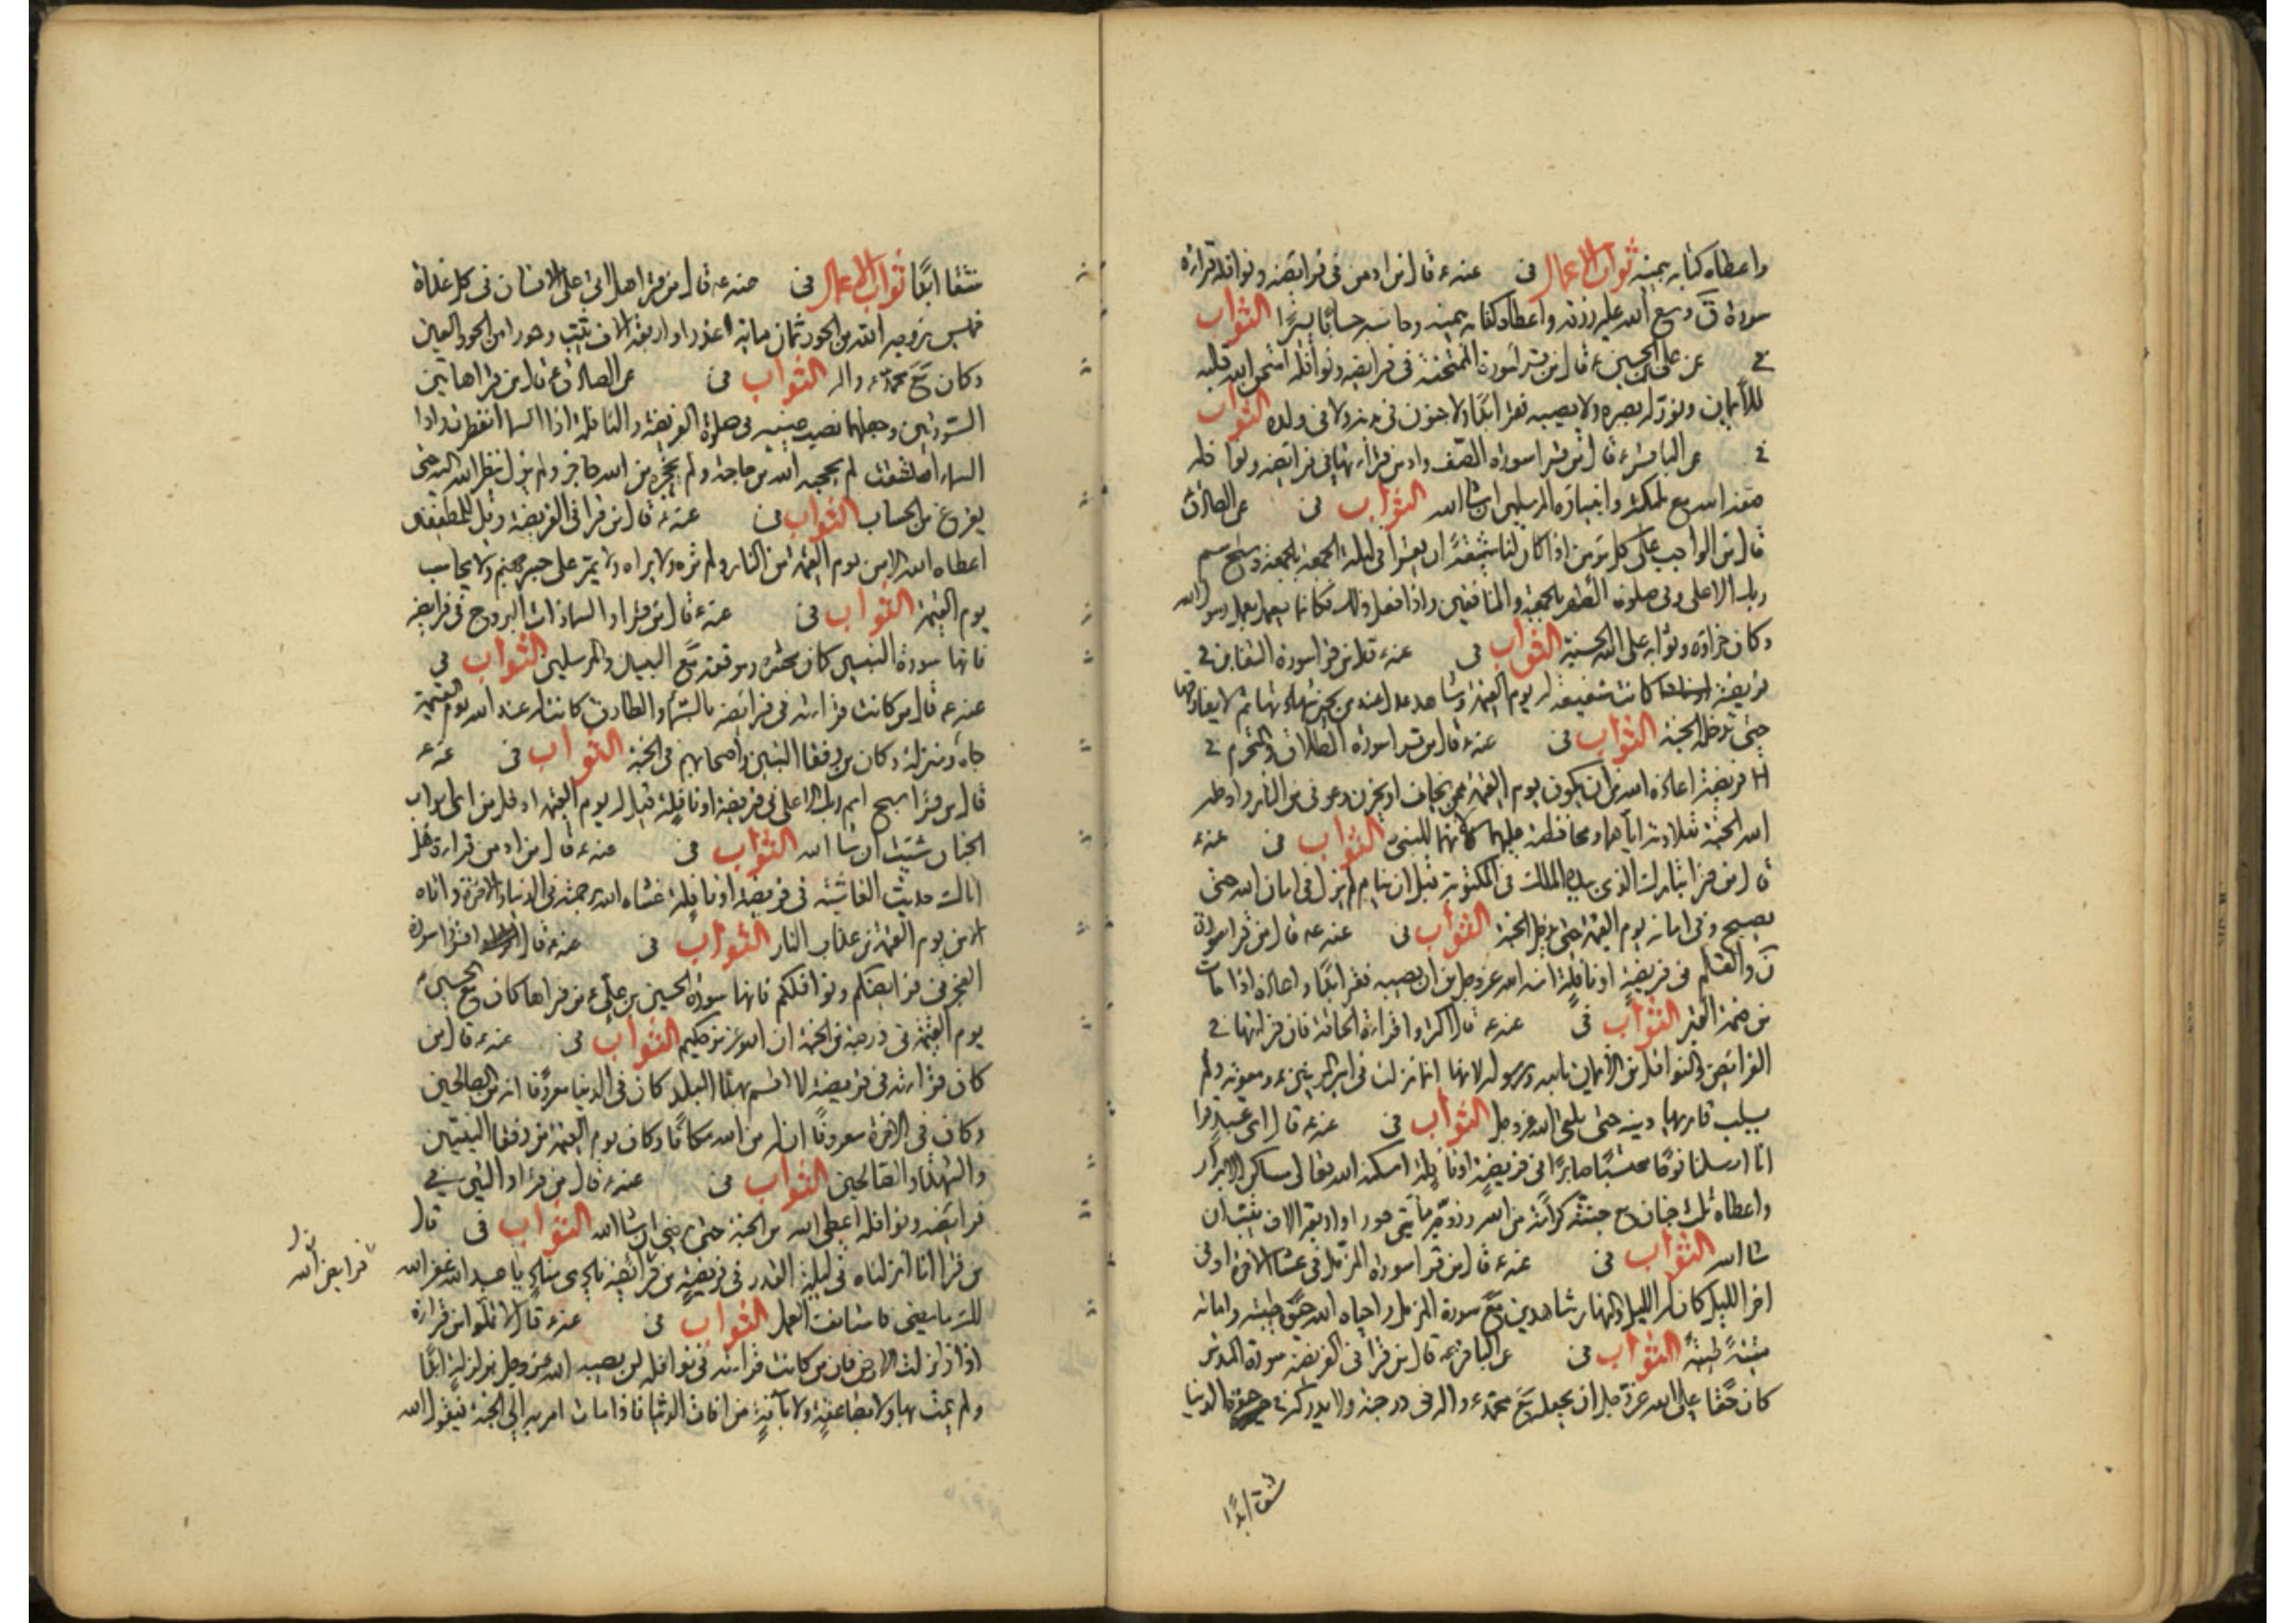 واعطاه كتابه بيمينه ثواب الاعمال فى عنه ع قال من ادمن فى فرايضه ونوافله قراءة
سورة ق وسع الله عليه رزقه واعطاه كتابه بيمينه وحاسبه حسابا يسيرا الثواب
فى عن على بن الحسين ع قال من قرا سورة الممتحنة فى فرايضه ونوافله امتحن الله قلبه
للايمان ونور له بصره ولا يصيبه فقر ابدا ولا جنون فى بدنه ولا فى ولده الثواب
فى عن الباقر ع قال من قرا سورة الصف وادمن قراءتها فى فرايضه ونوافله
صفه الله مع ملئكته وانبيائه المرسلين ان شا الله الثواب فى عن الصادق
قال من الواجب على كل مومن اذا كان لنا شيعة ان يقرا فى ليلة الجمعة بالجمعة وسبح اسم
ربك الاعلى وفى صلوة الظهر بالجمعة والمنافقين واذا فعل ذلك فكانما يعمل بعمل رسول الله
وكان جزاؤه وثوابه على الله الجنة الثواب فى عنه ع قال من قرا سورة التغابن فى
فريضة كانت شفيعة له يوم القيمة وشاهد عدل عند من يجيز شهادتها ثم لا يفارقها
حتى تدخله الجنة الثواب فى عنه ع قال من قرا سورة الطلاق والتحريم فى
فريضة اعاذه الله من ان يكون يوم القيمة ممن يخاف او يحزن وعوفى من النار وادخله
الله الجنة بتلاوته اياهما ومحافظته عليهما لانهما للنبى الثواب فى عنه ع
قال من قرا تبارك الذى بيده الملك فى المكتوبة قبل ان ينام لم يزل فى امان الله حتى
يصبح وفى امانه يوم القيمة حتى يدخل الجنة الثواب فى عنه ع قال من قرا سورة
ن والقلم فى فريضة او نافلة امنه الله عز وجل من ان يصيبه فقر ابدا واعاذه اذا مات
من ضمة القبر الثواب فى عنه ع قال اكثروا قراءة الحاقة فان قراءتها فى
الفرائض والنوافل من الايمان بالله ورسوله لانها انما نزلت فى امير المومنين ع ومعوية ولم
يسلب قاريها دينه حتى يلقى الله عز وجل الثواب فى عنه ع قال اى عبد قرا
انا ارسلنا نوحا محتسبا صابرا فى فريضة او نافلة اسكنه الله تعالى مساكن الابرار
واعطاه ثلث جنان مع جنته كرامة من الله وزوجه مأتى حورا واربعة الاف ثيب ان
شا الله الثواب فى عنه ع قال من قرا سورة المزمل فى عشا الاخرة او فى
اخر الليل كان له الليل والنهار شاهدين مع سورة المزمل واحياه الله حيوة طيبة واماته
ميتة طيبة الثواب فى عن الباقر ع قال من قرا فى الفريضة سورة المدثر
كان حقا على الله عز وجل ان يجعله مع محمد ع واله فى درجته ولا يدركه فى حيوة الدنيا
شقا ابدا
شقا ابدا ثواب الاعمال فى عنه ع قال من قرا هل اتى على الانسان فى كل غداة
خميس زوجه الله من الحور ثمان مائة عذرا واربعة الاف ثيب وحورا من الحور العين
وكان مع محمد ع واله الثواب فى عن الصادق ع قال من قرا هاتين
السورتين وجعلهما نصب عينيه فى صلوة الفريضة والنافلة اذا السما انفطرت واذا
السما انشقت لم يحجبه الله من حاجة ولم يحجزه من الله حاجز ولم يزل ينظر الله اليه حتى
يفرغ من الحساب الثواب فى عنه ع قال من قرا فى الفريضة ويل للمطففين
اعطاه الله الامن يوم القيمة من النار ولم تره ولا يراه ولا يمر على جسر جهنم ولا يحاسب
يوم القيمة الثواب فى عنه ع قال من قرا والسما ذات البروج فى فرايضه
فانها سورة النبيين كان محشره وموقفه مع النبيين والمرسلين الثواب فى
عنه ع قال من كانت قراءته فى فرايضه بالسما والطارق كانت له عند الله يوم القيمة
جاه ومنزلة وكان من رفقا النبيين واصحابهم فى الجنة الثواب فى عنه ع
قال من قرا سبح اسم ربك الاعلى فى فريضة او نافلة قيل له يوم القيمة ادخل من اى ابواب
الجنان شئت ان شا الله الثواب فى عنه ع قال من ادمن قراءة هل
اتاك حديث الغاشية فى فريضة او نافلة غشاه الله برحمته فى الدنيا والاخرة واتاه
الامن يوم القيمة من عذاب النار الثواب فى عنه ع قال اقرؤا سورة
الفجر فى فرايضكم ونوافلكم فانها سورة الحسين بن على ع من قراها كان مع الحسين ع
يوم القيمة فى درجته من الجنة ان الله عزيز حكيم الثواب فى عنه ع قال من
كان قراءته فى فريضة لا اقسم بهذا البلد كان فى الدنيا معروفا انه من الصالحين
وكان فى الاخرة معروفا ان له من الله مكانا وكان يوم القيمة من رفقا النبيين
والشهدا والصالحين الثواب فى عنه ع قال من قرا والتين فى
فرايضه ونوافله اعطى الله من الجنة حتى يرضى ان شا الله الثواب فى قال
من قرا انا انزلناه فى ليلة القدر فى فريضة من فرائضه نادى مناد يا عبد الله غفر الله
فرايض الله
لك ما مضى فاستانف العمل الثواب فى عنه ع قال لا تملوا من قراءة
اذا زلزلت الارض فان من كانت قراءته فى نوافله لم يصبه الله عز وجل بزلزلة ابدا
ولم يمت بها ولا بصاعقة ولا بآفة من افات الدنيا فاذا مات امر به الى الجنة فيقول الله